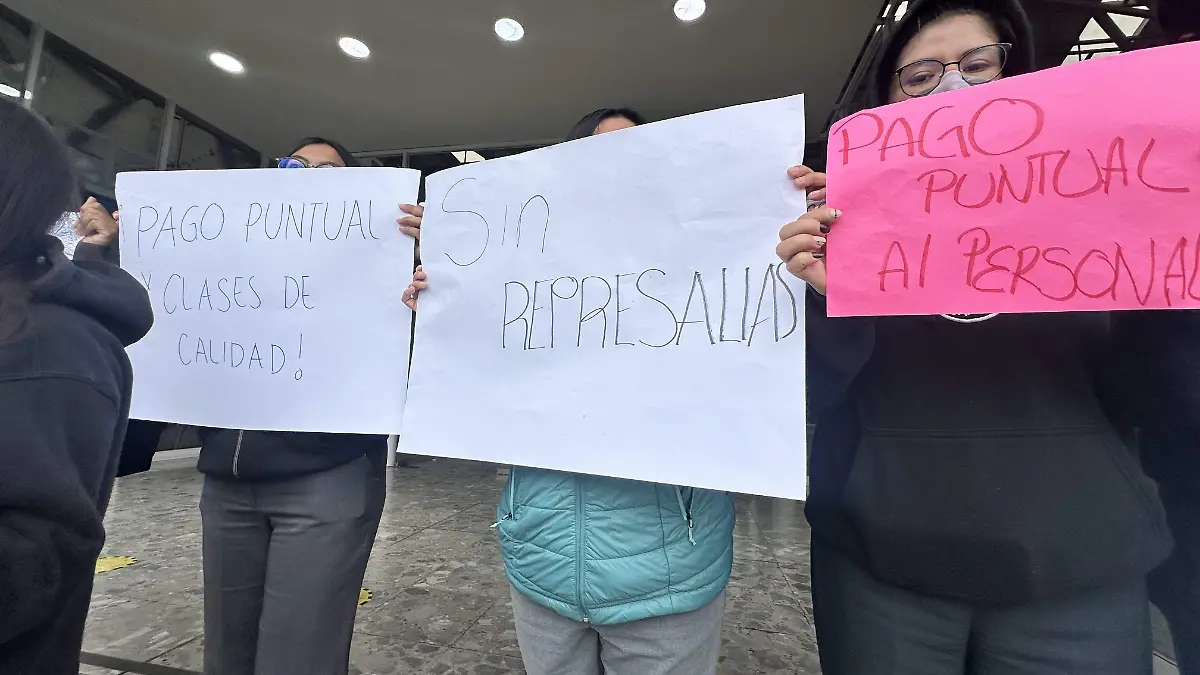 ¡PAGO PUNTUAL
Y CLASES DE
CALIDAD!
Sin
REPRESALIAS
PAGO
PUNTUAL
Al PERSONAL